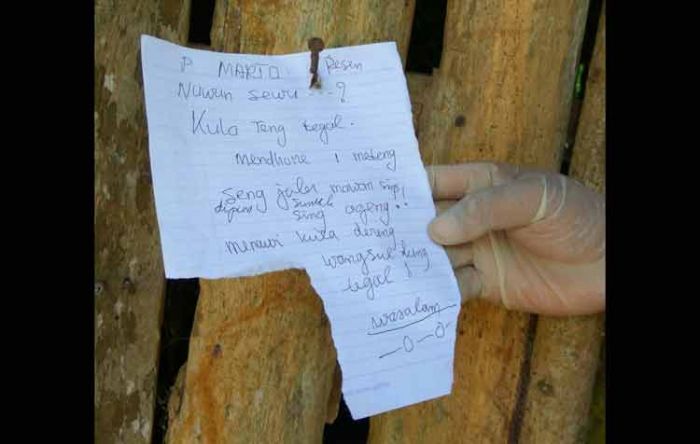 P MARTO Pesen
Nuwun sewu ---?
Kula Teng tegal.
Mendhone 1 mateng
Seng jaler mawon
dipun suntek
sing ageng..!
menawi kula dereng
wangsul tegal
wasalam